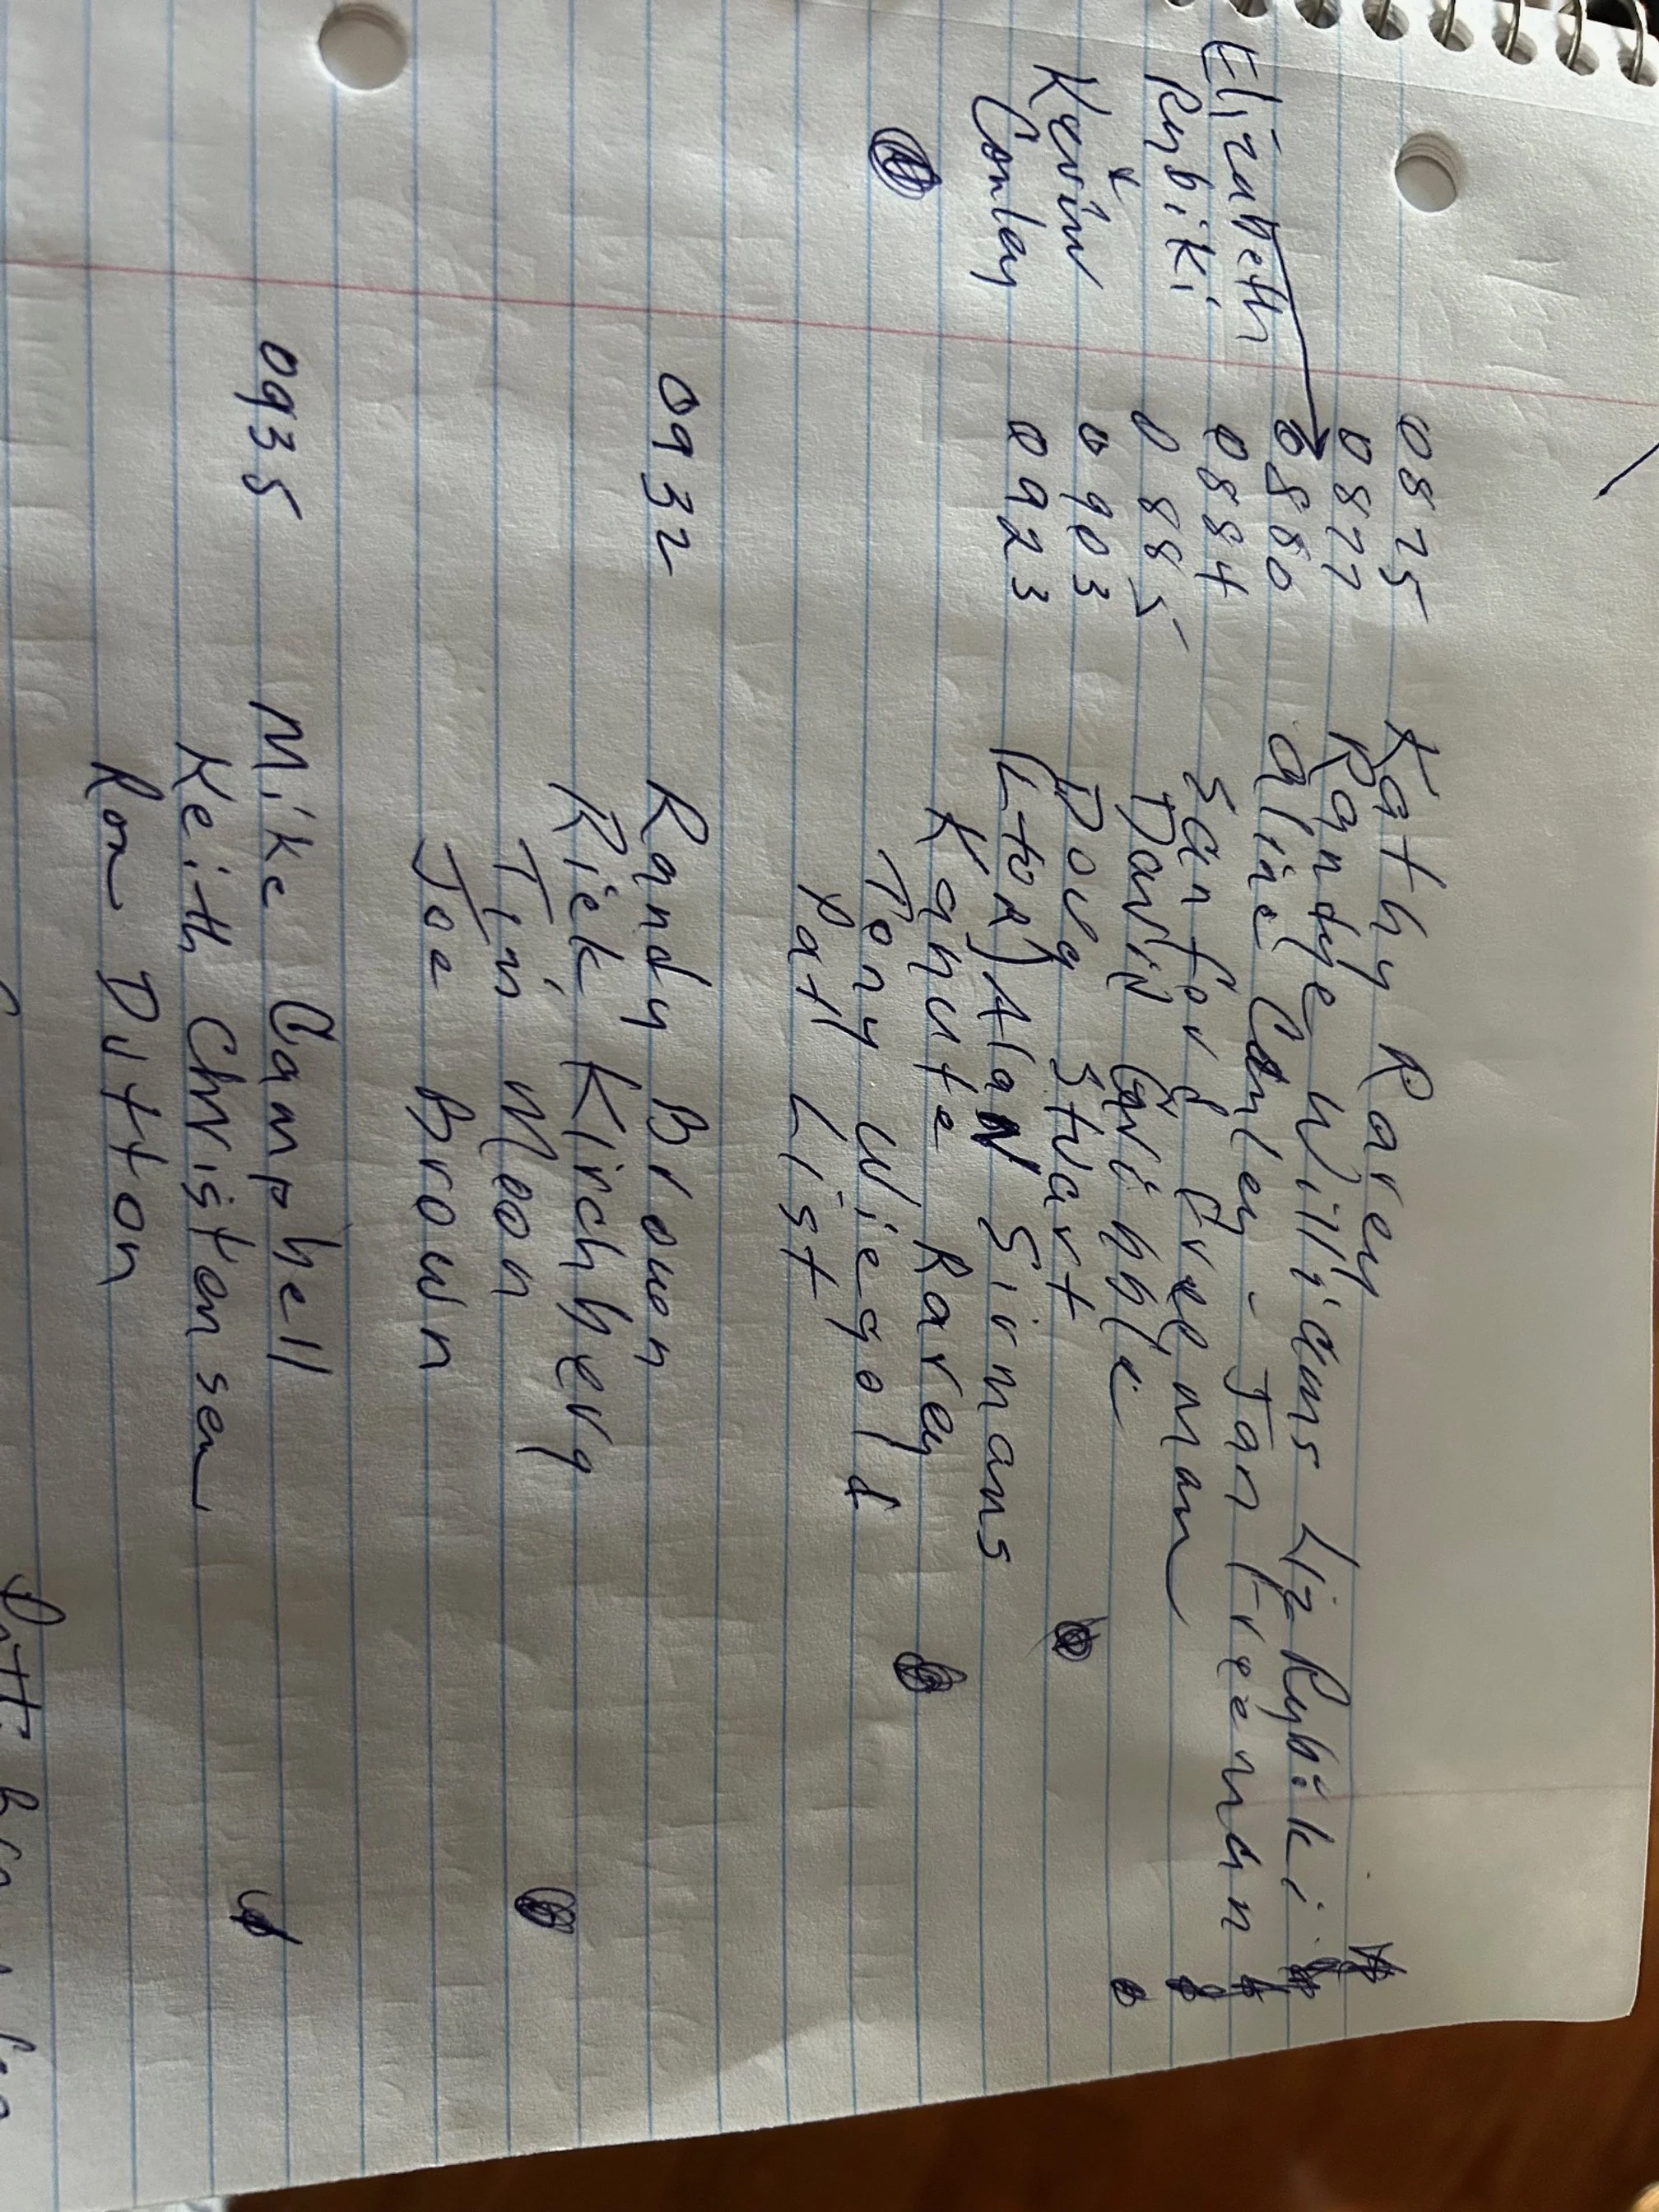 0875 Kathy Rarey
0877 Randye Williams Liz Rybiki
0880 Aline Conley - Jan Freeman
0884 Sanford Freeman
0885 David Gribble
0903 Doug Stuart
0923 (L to R) Alan Sirmans
Knute Rarey
Tony Wiegold
Pat List
Elizabeth
Rybiki
Kevin
Conley
0932 Randy Brown
Rick Kirchberg
Tim Moon
Joe Brown
0935 Mike Campbell
Keith Christensen
Ron Dutton